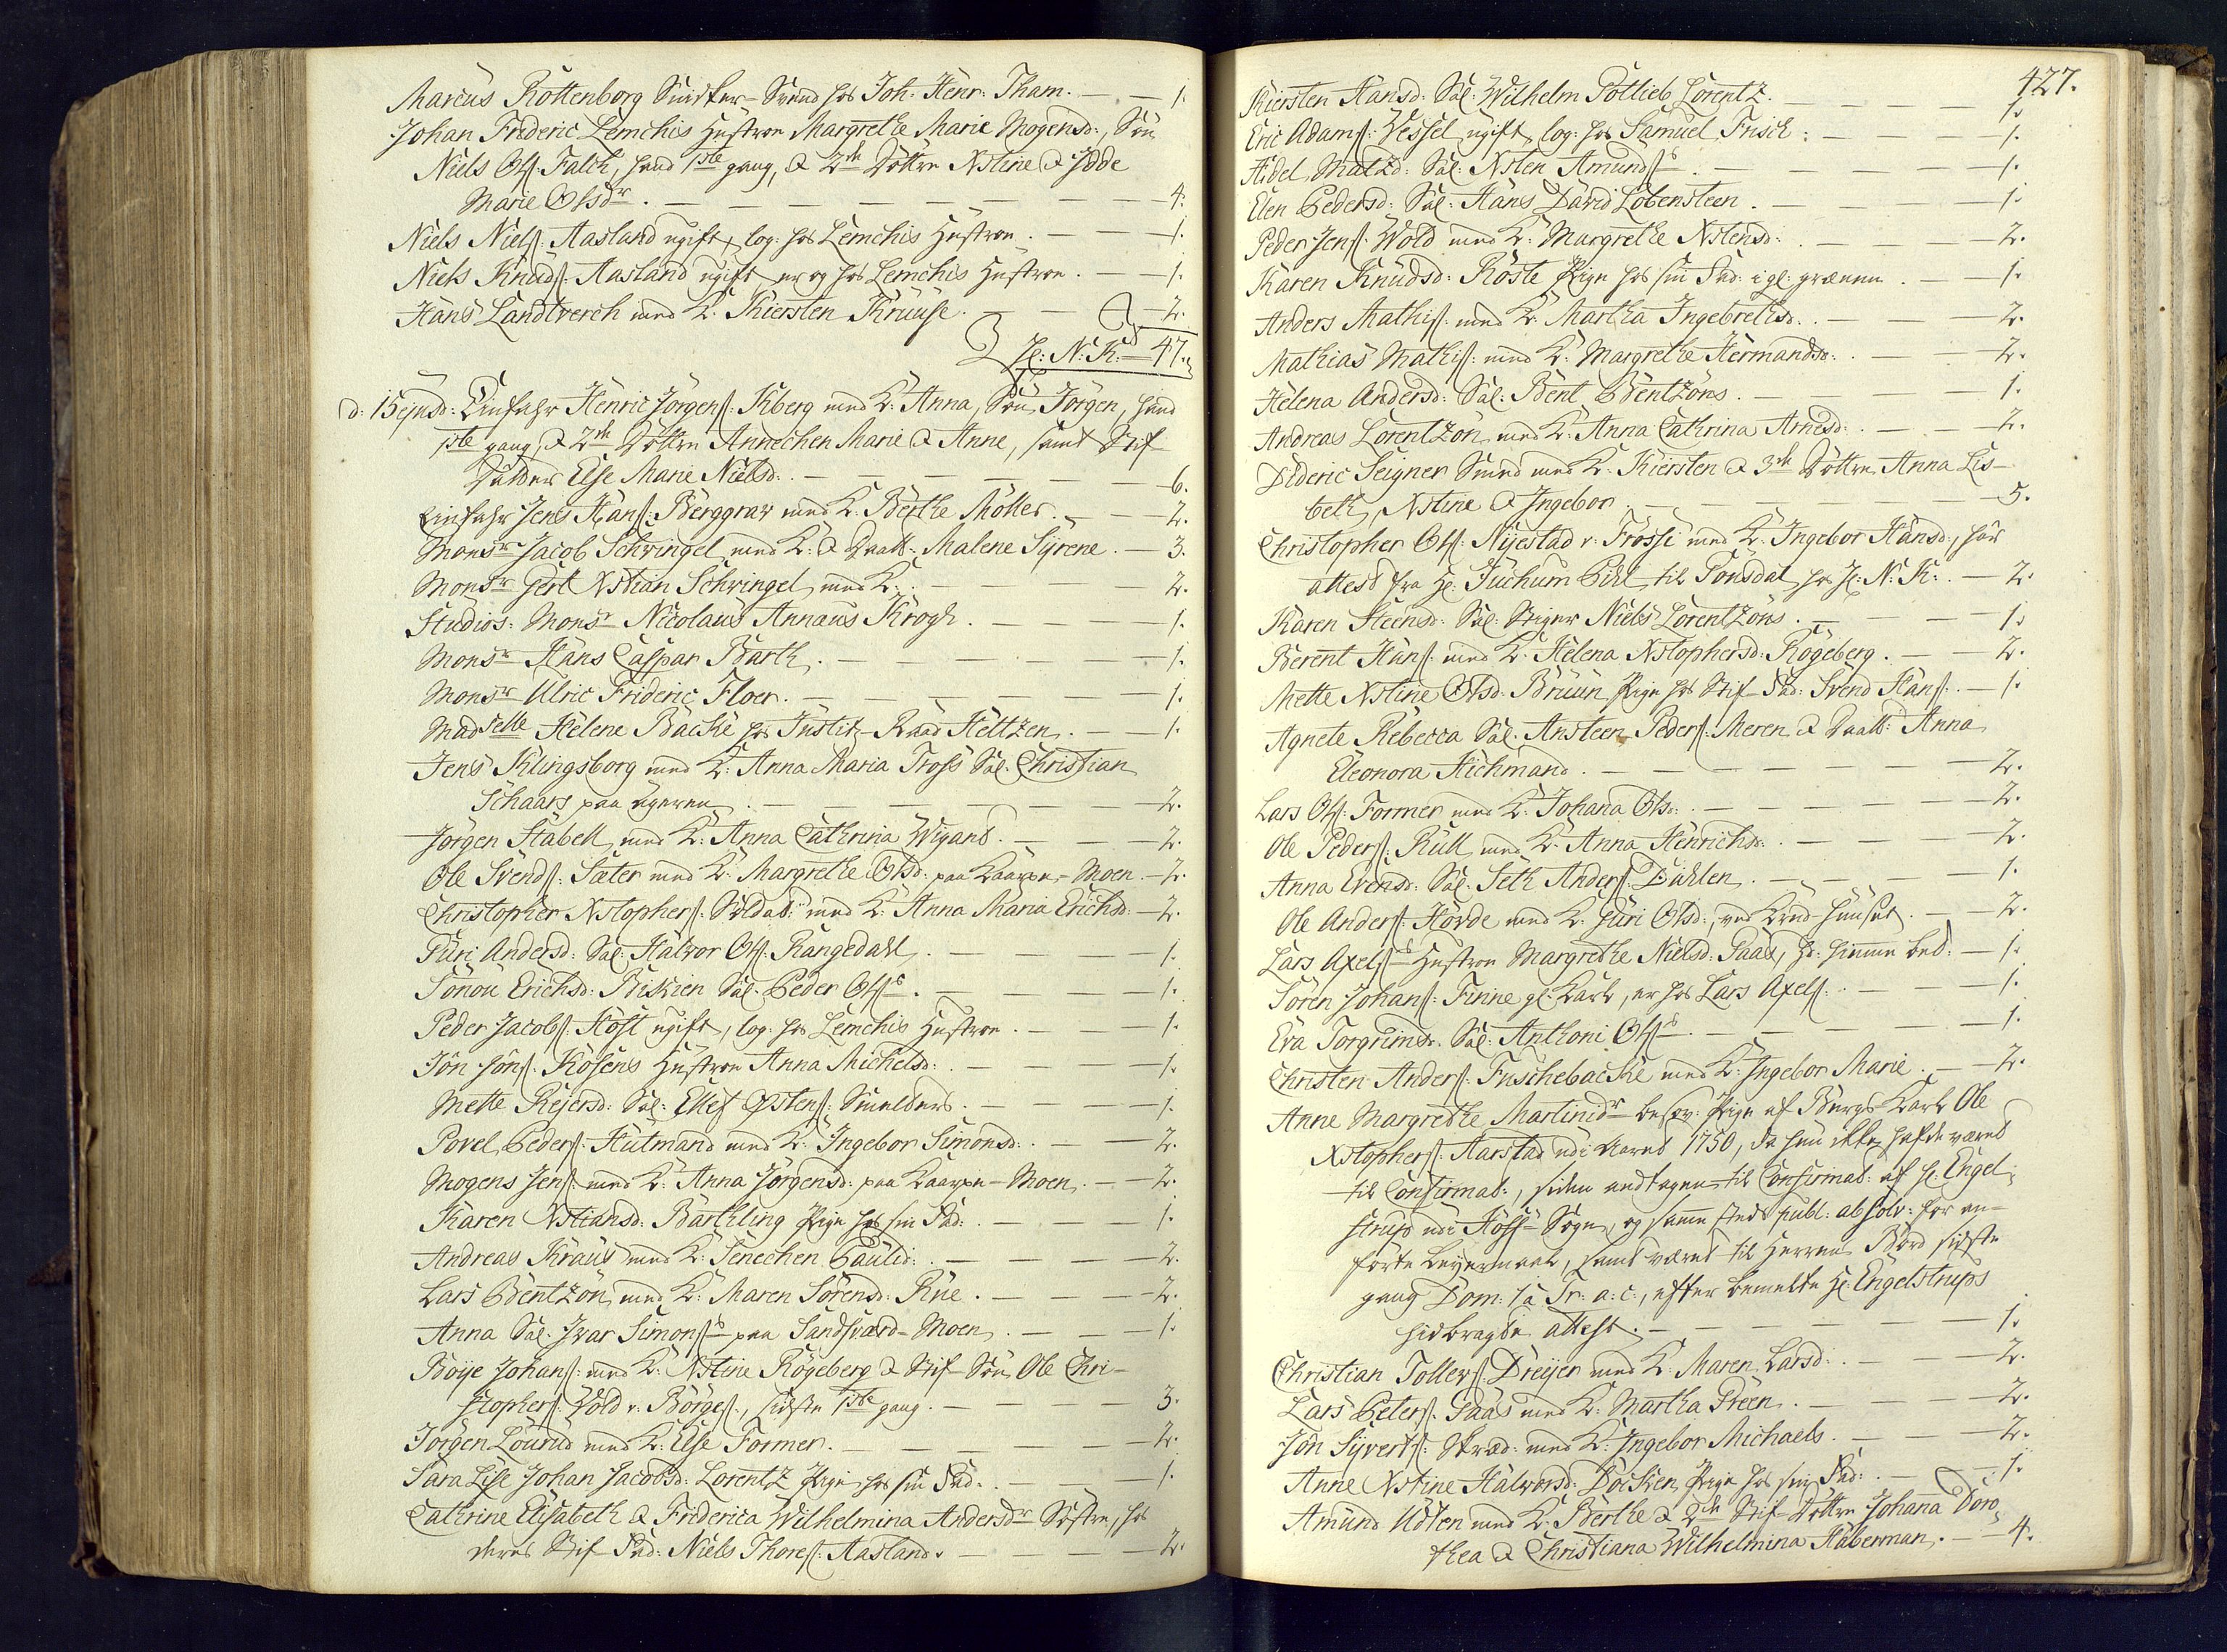 Marcus Rottenborg Snidker-Svend hos Joh: Henr: Tham. — — 1.
Johan Frideric Lemchis Hustroe Margrethe Marie Mogensd:, Søn
Niels Ols: Falch, hand 1ste gang, & 2de Døttre Xstine & Inde
Marie Olsdr. — — — — — — 4.
Niels Niels: Aasland ugift, log: hos Lemchis Hustroe. — — 1.
Niels Knuds: Aasland ugift er og hos Lemchis Hustroe. — 1.
Hans Landtverch med K: Kiersten Kruuse. — — 2.
H: N: K: — 47.
d: 15 ejusd: Einfahr Henric Jørgens: Kiberg med K: Anna, Søn Jørgen, hand
1ste gang, & 2de Døttre Annechen Marie & Anne, samt Stif-
Datter Else Marie Nielsd: — — — — 6.
Einfahr Jens Hans: Berggrav med K: Berthe Møller. — — 2.
Monsr Jacob Schwingel med K: & Daatt: Malene Syrene. — 3.
Monsr Gert Xstian Schwingel med K: — — 2.
Studios: Monsr Nicolaus Annæus Krogh. — — — 1.
Monsr Hans Caspar Barth. — — — — 1.
Monsr Ulric Frideric Floer. — — — — 1.
Madselle Helene Backe hos Justitz-Raad Heltzen. — — 1.
Jens Klingsborg med K: Anna Maria Tross Sal: Christian
Schaars paa Ageren. — — — — 2.
Jørgen Stabell med K: Anna Cathrina Wigant. — — 2.
Ole Svends: Sæter med K: Margrethe Olsd: paa Kaarpe-Moen. — 2.
Christopher Xstophers: Soldat: med K: Anna Maria Erichsd: — 2.
Turi Andersd: Sal: Halvor Ols: Rangedahl. — — — 1.
Sønou Erichsd: Biskien Sal: Peder Ols: — — — 1.
Peder Jacobs: Høst ugift, log: hos Lemchis Hustroe. — — 1.
Jôn Jôns: Kosens Hustroe Anna Michelsd: — — 1.
Mette Rejersd: Sal: Ellef Østens: Smelters. — — 1.
Povel Peders: Hutmand med K: Ingebor Simonsd: — — 2.
Mogens Jens: med K: Anna Jørgensd: paa Kaarpe-Moen. — 2.
Karen Xstiansd: Barthling Pige hos sin Fad: — — 1.
Andreas Kraus med K: Lenechen Paulsd: — — 2.
Lars Bentzøn med K: Maren Sørensd: Rue. — — 2.
Anna Sal: Ivar Simons: paa Sandsværd-Moen. — — 1.
Boye Johans: med K: Xstine Røgeberg & Stif-Søn Ole Chri-
stophers: Vold v: Børges:, sidste 1ste gang. — — 3.
Jørgen Lourid med K: Else Former. — — — 2.
Sara Lise Johan Jacobsd: Lorentz Pige hos sin Fad: — — 1.
Cathrine Elisabeth & Friderica Wilhelmina Andersdr Søstre, hos
deres Stif-Fad: Niels Thores: Aasland. — — — 2.
427.
Kiersten Hansd: Sal: Wilhelm Gottlieb Lorentz. — — — 1.
Eric Adams: Vessel ugift log: hos Samuel Frisch: — — 1.
Sidel Matzd: Sal: Xsten Amunds: — — — 1.
Elen Pedersd: Sal: Hans David Lobensteen. — — — 1.
Peder Jens: Wold med K: Margrethe Xstensd: — — 2.
Karen Knudsd: Roste Pige hos sin Fad: i gl: grænen. — 1.
Anders Mathis: med K: Martha Ingebrethsd: — — 2.
Mathias Mathis: med K: Margrethe Hermandsd: — — 2.
Helena Andersd: Sal: Bent Bentzøns. — — — 1.
Andreas Lorentzøn med K: Anna Cathrina Arnesd: — — 2.
Dideric Seigner Smed med K: Kiersten & 3de Døttre Anna Lis-
beth, Xstine & Ingebor. — — — — 5.
Christopher Ols: Nyestad v: Frossi med K: Ingebor Hansd:, har
attest fra H: Juchum Piil til Tonsdal hos H: N: K: — 2.
Karen Steensd: Sal: Stiger Niels Lorentzøns. — — — 1.
Berent Hans: med K: Helena Xstophersd: Røgeberg. — — 2.
Mette Xstine Olsd: Bruun Pige hos Stif-Fad: Svend Hans: — 1.
Agnete Rebecca Sal: Ansteen Peders: Meren & Daatt: Anna
Eleonora Hichmand. — — — — 2.
Lars Ols: Former med K: Johana Olsd: — — — 2.
Ole Peders: Rull med K: Anna Henrichsd: — — 2.
Anna Evensd: Sal: Seth Anders: Dahlen. — — — 1.
Ole Anders: Hovde med K: Guri Olsd:, ved Krud-Huuset. — 2.
Lars Axels: Hustroe Margrethe Nielsd: Paas, hr: hiemme bet: — 1.
Søren Johans: Finne gl: Karl, er hos Lars Axels: — — 1.
Eva Torgrimsd: Sal: Anthoni Ols: — — — 1.
Christen Anders: Fuschebacke med K: Ingebor Marie. — — 2.
Anne Margrethe Martinidr besov: Pige af Bergs Karl Ole
Xstophers: Aarstad udi Aaret 1750, da hun ikke hafde været
til Confirmat:, siden andtagen til Confirmat: af H: Engel-
strup udi Hoffs Sogn, og samme steds publ: absolv: for an-
førte Leyermaal, samt været til Herrens Bord sidste
gang Dom: 1 a Tr: a: c:, efter bemelte H: Engelstrups
hidbragte attest. — — — — 1.
Christian Tollevs: Dreyer med K: Maren Larsd: — — 2.
Lars Peters: Paas med K: Martha Preen. — — 2.
Jôn Syverts: Skræd: med K: Ingebor Michaels. — — 2.
Anne Xstine Halvorsd: Docken Pige hos sin Fad: — — 1.
Amund Udsen med K: Berthe & 2de Stif-Døttre Johanna Doro-
thea & Christiana Wilhelmina Haberman. — 4.